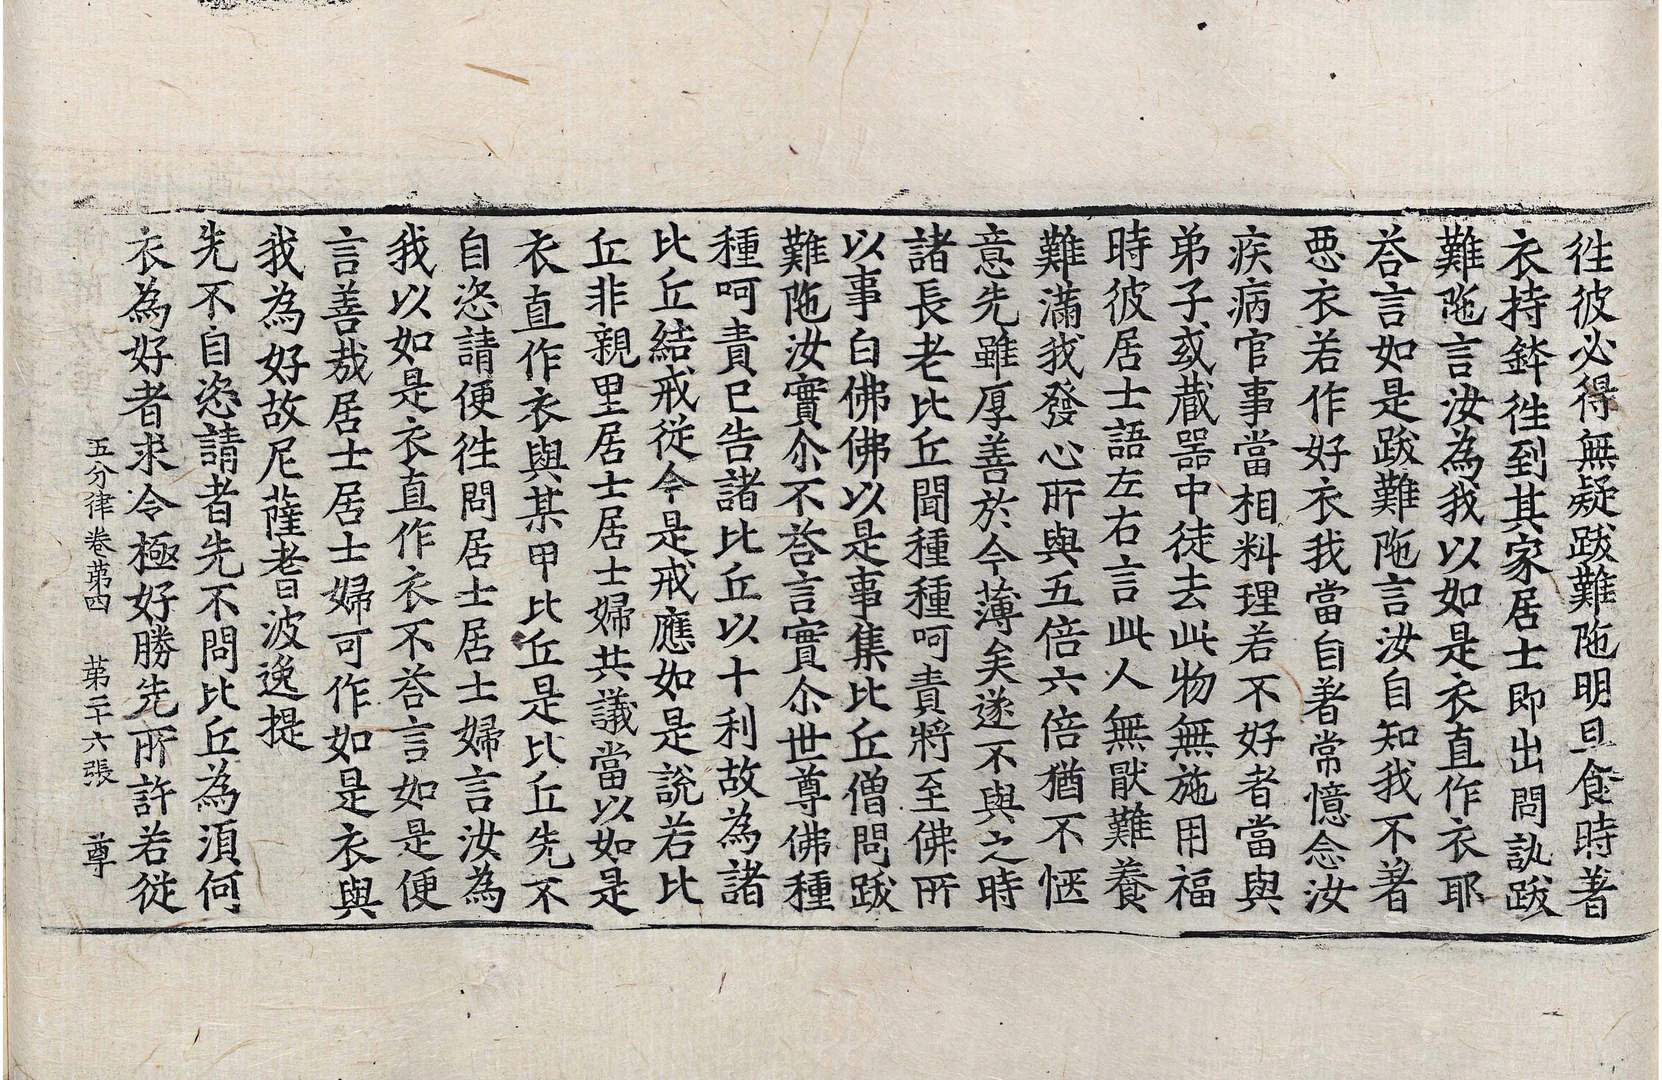 徃彼必得無疑跋難陁明旦食時著
衣持鉢徃到其家居士即出問訊跋
難陁言汝為我以如是衣直作衣耶
荅言如是跋難陁言汝自知我不著
惡衣若作好衣我當自著常憶念汝
疾病官事當相料理若不好者當與
弟子或蔵噐中徒去此物無施用福
時彼居士語左右言此人無猒難養
難滿我發心所與五倍六倍猶不愜
意先雖厚善於今薄矣遂不與之時
諸長老比丘聞種種呵責將至佛所
以事白佛佛以是事集比丘僧問跋
難陁汝實尒不荅言實尒世尊佛種
種呵責已告諸比丘以十利故為諸
比丘結戒從今是戒應如是說若比
丘非親里居士居士婦共議當以如是
衣直作衣與某甲比丘是比丘先不
自恣請便徃問居士居士婦言汝為
我以如是衣直作衣不荅言如是便
言善哉居士居士婦可作如是衣與
我為好故尼薩耆波逸提
先不自恣請者先不問比丘為湏何
衣為好者求令極好勝先所許若從
五分律卷第四 第二十六張 尊